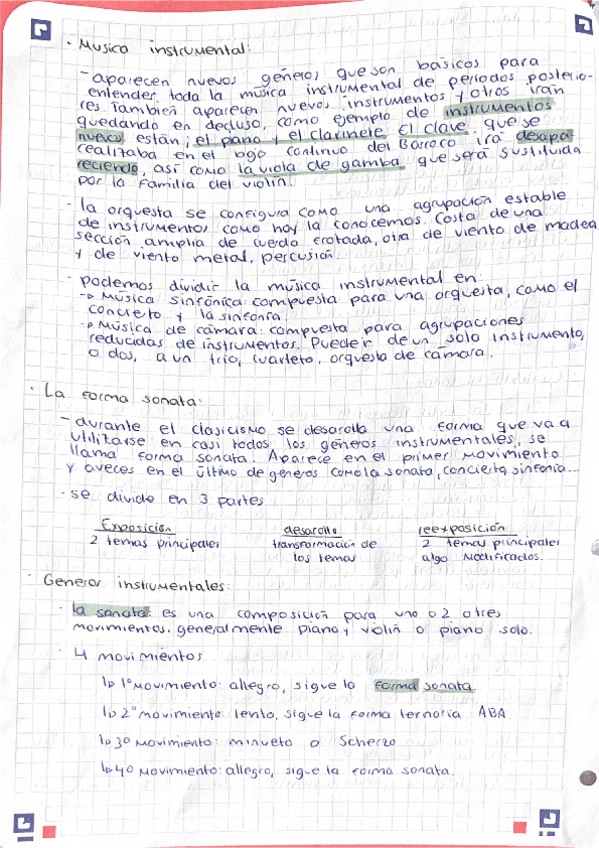 · Musica instrumental:
- aparecen nuevos géneros que son básicos para
entender toda la música instrumental de periodos posterio-
res también aparecen nuevos instrumentos y otros irán
quedando en desuso, como ejemplo de instrumentos
nuevos están; el piano y el clarinete. El clave, que se
realizaba en el bajo continuo del Barroco irá desapa
reciendo, así como la viola de gamba que será sustituida
por la familia del violín.
- la orquesta se configura como una agrupación estable
de instrumentos como hoy la conocemos. Costa de una
sección amplia de cuerda frotada, otra de viento de madea
y de viento metal, percusión.
- podemos dividir la música instrumental en:
-> Música sinfónica: compuesta para una orquesta, como el
concierto y la sinfonía.
-> Música de cámara: compuesta para agrupaciones
reducidas de instrumentos. Pueder de un solo instrumento,
o dos, a un trío, cuarteto, orquesta de cámara.
· La forma sonata:
- durante el clasicismo se desarolla una forma que va a
utilizarse en casi todos los géneros instrumentales, se
llama forma sonata. Aparece en el primer movimiento
y aveces en el último de generos como la sonata, concierto, sinfonia...
- se divide en 3 partes
Exposición desarollo reexposición
2 temas principales transformación de 2 temas principales
los temas algo modificados.
· Generos instrumentales:
· la sonata: es una composición para uno o 2 o tres
movimientos, generalmente piano y violín o piano solo.
· 4 movimientos
↳ 1º movimiento: allegro, sigue la forma sonata
↳ 2º movimiento lento, sigue la forma ternaria ABA
↳ 3º movimiento: minueto o Scherzo
↳ 4º movimiento: allegro, sigue la forma sonata.